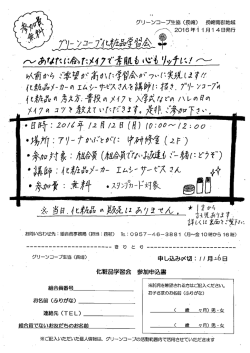 グリーンコープ生協（長崎） 長崎南部地域
2016年11月14日発行
参加費無料
グリーンコープ化粧品学習会
～あなたに合ったメイクで素肌も心もリッチに！～
以前からご要望が高かった学習会がついに実現します!!
化粧品メーカーのエムシーサービスさんを講師に招き、グリーンコープの
化粧品の考え方、普段のメイクと入学式などのハレの日の
メイクのコツを教えていただけます。是非ご参加下さい。
・日時：2016年12月12日(月) 10:00～12:00
・場所：アリーナかぶとがに 中研修室(2F)
・参加対象：組合員（組合員でないお友達もご一緒にどうぞ）
・講師：化粧品メーカー エムシーサービスさん
・参加費：無料 ・スタンプカード対象
※当日、化粧品の販売はありません。
お問い合わせ先：組合員事務局（諫早：長崎） ℡：0957-46-3881（月～金 10時から18時）
きりとり
グリーンコープ生協（長崎） 申し込み〆切：11月26日
化粧品学習会 参加申込書
組合員番号
お名前（ふりがな）
連絡先（TEL）
組合員でないお友だちのお名前
※託児を希望される方はご記入ください。
お子さまのお名前（ふりがな）
（ 歳 ヶ月）男・女
（ 歳 ヶ月）男・女
※ご記入いただいた個人情報は、グリーンコープの活動範囲内で活用させていただきます